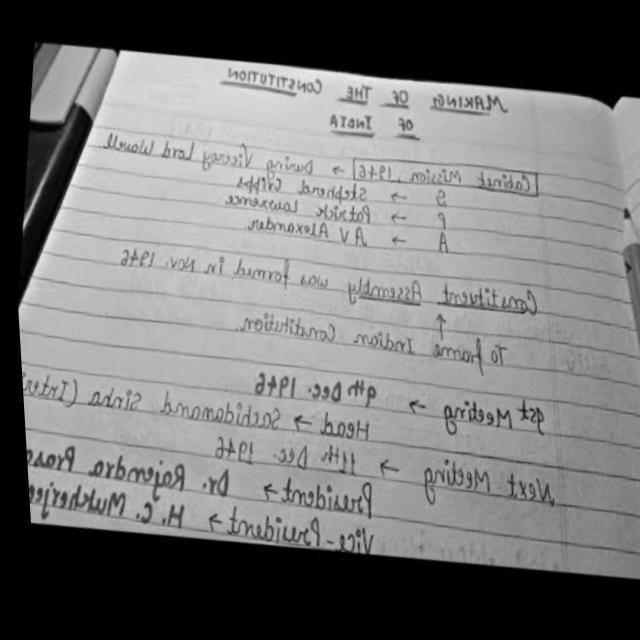 MAKING OF THE CONSTITUTION
OF INDIA
Cabinet Mission, 1946 → During Viceroy Lord Wavell
S → Stafford Cripps
P → Pethick Lawrence
A → A V Alexander
Constituent Assembly was formed in Nov. 1946
↑
To frame Indian Constitution
1st Meeting → 9th Dec. 1946
Head → Sachidanand Sinha
Next Meeting → 11th Dec. 1946
President → Dr. Rajendra
Vice-President → H.C. Mukherjee